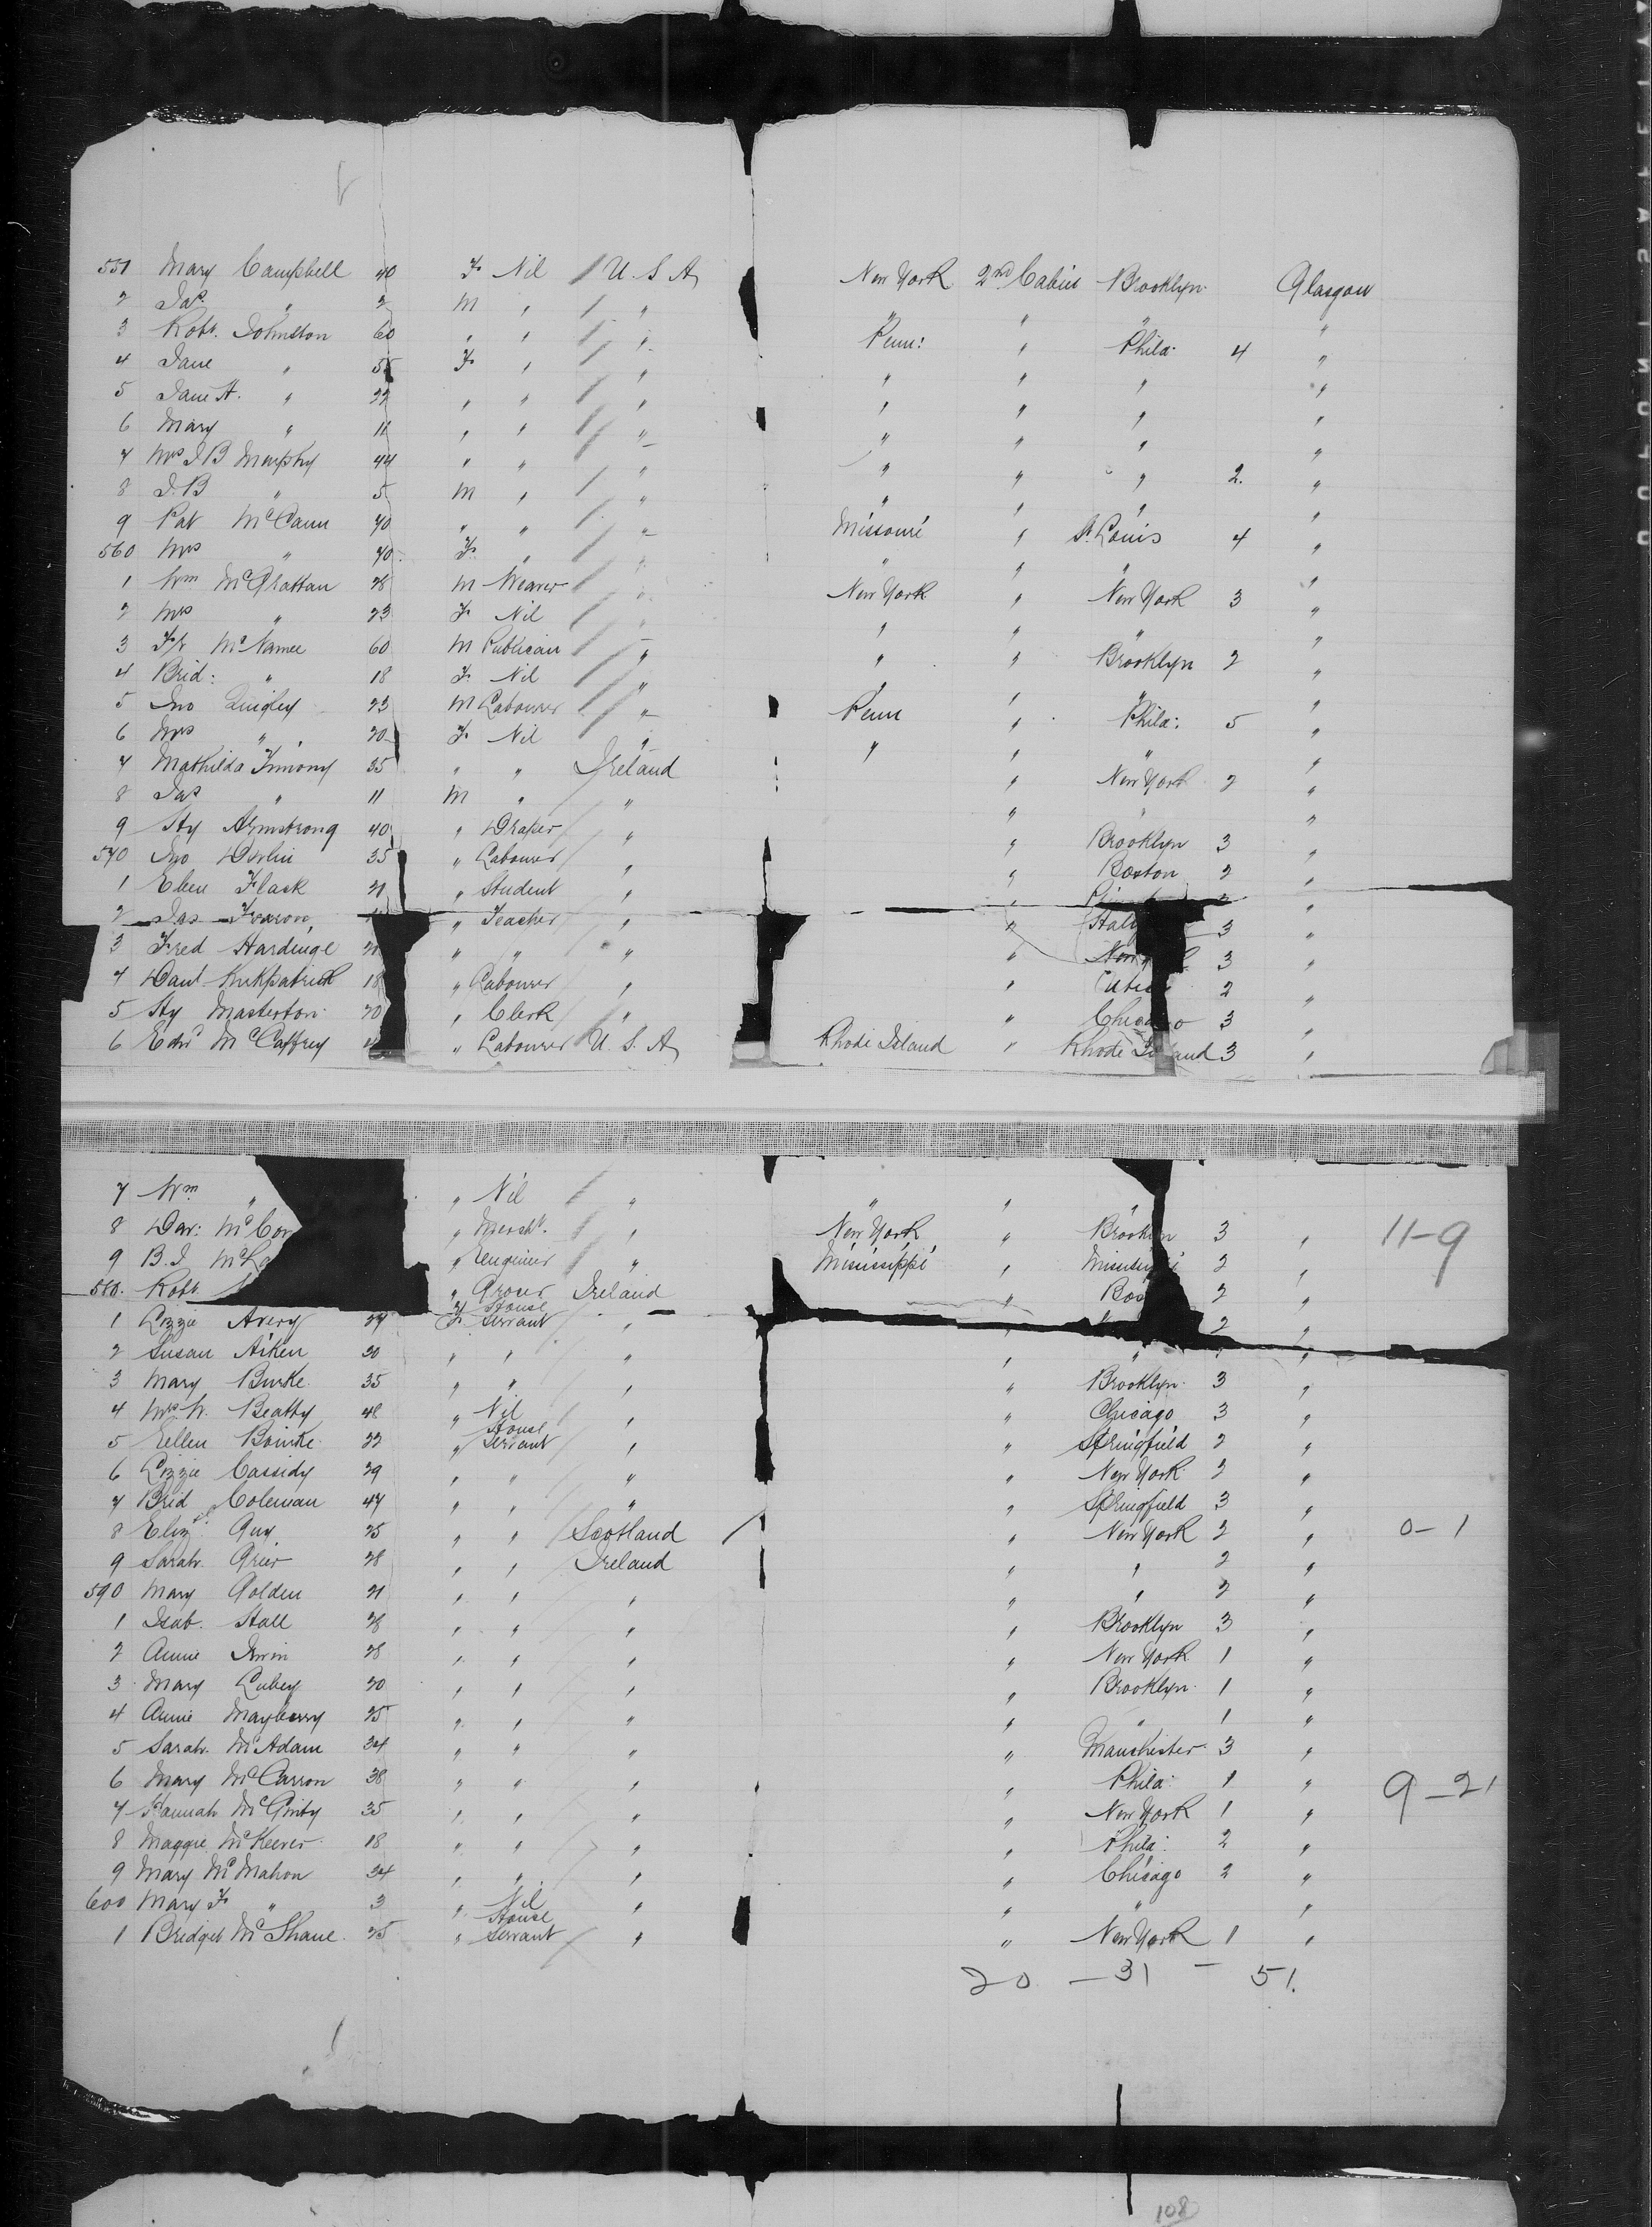 551 Mary Campbell 40 F Nil U.S.A New York 2nd Cabin Brooklyn Glasgow
2 Jas " 2 M " " " " " "
3 Robt. Johnston 60 " " " Penn: " Phila: 4 "
4 Jane " 55 F " " " " " "
5 Jane A. " 22 " " " " " " "
6 Mary " 11 " " " " " " "
7 Mrs J B Murphy 44 " " " " " " 2. "
8 J. B " 5 M " " " " " "
9 Pat McCann 70 " " " Missouri " St. Louis 4 "
560 Mrs " 70 F " " " " " "
1 Wm McGrattan 28 M Weaver " New York " New York 3 "
2 Mrs " 23 F Nil " " " " "
3 McNamee 60 M Publican " " " Brooklyn 2 "
4 Brid: " 18 F Nil " " " " "
5 Jno Quigley 23 M Labourer " Penn " Phila: 5 "
6 Mrs " 20 F Nil " " " " "
7 Mathilda Timony 35 " " Ireland " New York 2 "
8 Jas " 11 M " " " " "
9 Hy Armstrong 40 " Draper " " Brooklyn 3 "
570 Jno Devlin 35 " Labourer " " Boston 2 "
1 Eben Flack 21 " Student " " "
2 Jas " Teacher " " 3 "
3 Fred Hardinge " " " " New 3 "
4 Danl Kirkpatrick 18 " Labourer " " Utica 2 "
5 Hy Masterton 20 " Clerk " " Chicago 3 "
6 Edwd McCaffrey " Labourer U.S.A Rhode Island " Rhode Island 3 "
7 Wm " " Nil " " " "
8 Dav: " Mercht. " New York " Brooklyn 3 " 11-9
9 B.J " Engineer " Mississippi " 2 "
580. Robt " Grocer Ireland " 2 "
1 Lizzie Avery 24 F House Servant " " 2 "
2 Susan Aiken 30 " " " " " "
3 Mary Burke 35 " " " " Brooklyn 3 "
4 Mrs W. Beatty 48 " Nil " " Chicago 3 "
5 Ellen 22 " House Servant " " Springfield 2 "
6 Lizzie Cassidy 29 " " " " New York 2 "
7 Brid Coleman 47 " " " " Springfield 3 "
8 Elizth: Guy 25 " " Scotland " New York 2 " 0-1
9 Sarah Grier 28 " " Ireland " " 2 "
590 Mary Golden 21 " " " " " 2 "
1 Isab. Hall 28 " " " " Brooklyn 3 "
2 Annie Irwin 28 " " " " New York 1 "
3 Mary Lubey 20 " " " " Brooklyn 1 "
4 Annie Mayberry 25 " " " " " 1 "
5 Sarah McAdam 34 " " " " Manchester 3 "
6 Mary McCarron 38 " " " " Phila: 1 " 9-21
7 Hannah McGinty 35 " " " " New York 1 "
8 Maggie McKeever 18 " " " " Phila: 2 "
9 Mary McMahon 34 " " " " Chicago 2 "
600 Mary F " 3 " Nil " " " "
1 Bridget McShane 25 " House Servant " " New York 1 "
20 - 31 - 51.
108